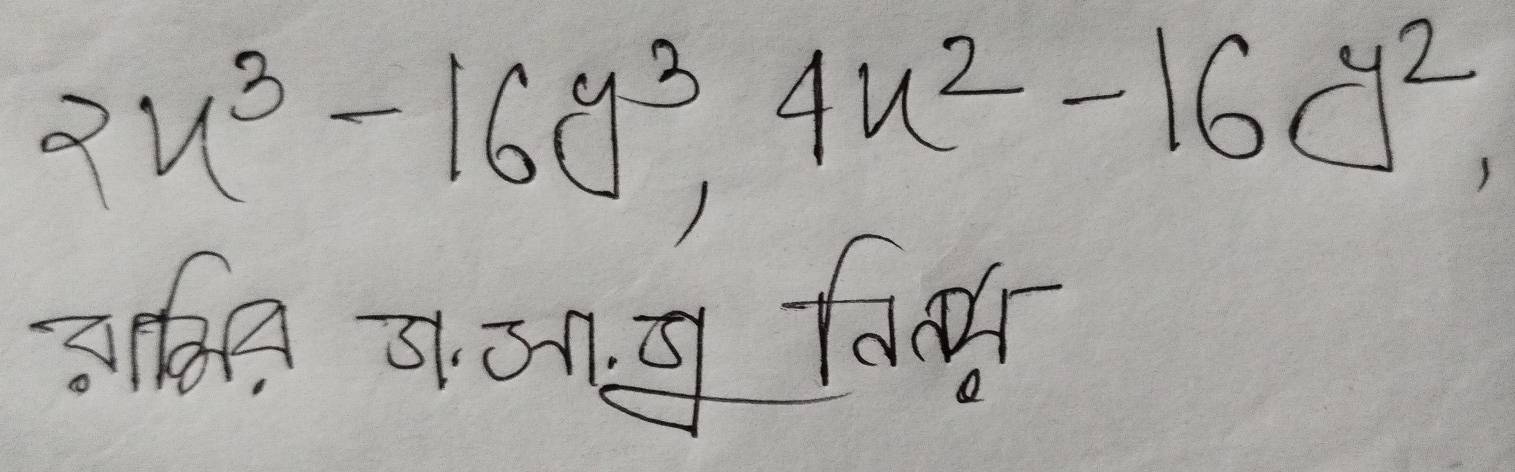 2x³ - 16y³, 4x² - 16y²,
রাশির গ.সা.গু নির্ণয়